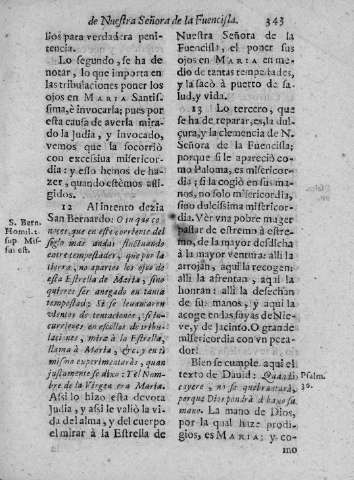 de Nuestra Señora de la Fuencisla. 343
sios para verdadera peni-
tencia.
Lo segundo, se ha de
notar, lo que importa en
las tribulaciones poner los
ojos en MARIA Santis-
sima, è invocarla; pues por
esta causa de averla mira-
do la Judia, y invocado,
vemos que la socorriò
con excessiva misericor-
dia: y esso hemos de ha-
zer, quando estèmos afli-
gidos.
12 Al intento dezia
San Bernardo: O tu que co-
noces, que en este corriente del
siglo mas andas fluctuando
entre tempestades, que por la
tierra, no apartes los ojos de
esta Estrella de Maria, sino
quieres ser anegado en tanta
tempestad: Si se levantaren
vientos de tentaciones, si in-
currieres en escollos de tribu-
laciones, mira à la Estrella,
llama à Maria, &c. y en ti
mismo experimentaràs, quan
justamente se dixo: Y el Nom-
bre de la Virgen era Maria.
Assi lo hizo esta devota
Judia, y assi le valiò la vi-
da del alma, y del cuerpo
el mirar à la Estrella de
S. Bern.
Homil. 2.
sup Mis-
sus est.
Nuestra Señora de la
Fuencisla, el poner sus
ojos en MARIA en me-
dio de tantas tempestades,
y la sacò à puerto de sa-
lud, y vida.
13 Lo tercero, que
se ha de reparar, es, la dul-
çura, y la clemencia de N.
Señora de la Fuencisla;
porque si le apareciò co-
mo Paloma, es misericor-
dia; si la cogiò en sus ma-
nos, no solo misericordia,
sino dulcissima misericor-
dia. Vèr vna pobre muger
passar de estremo à estre-
mo, de la mayor desdicha
à la mayor ventura: alli la
arrojan, aqui la recogen:
alli la afrentan, aqui la
honran: alli la desechan
de sus manos, y aqui la
acoge en las suyas de Nie-
ve, y de Jacinto. O grande
misericordia con vn peca-
dor!
Bien se cumple aqui el
texto de David: Quando
cayere, no se quebrantarà,
porque Dios pondrà debaxo su
mano. La mano de Dios,
por la qual haze prodi-
gios, es MARIA; y, co-
Psalm.
36.
mo